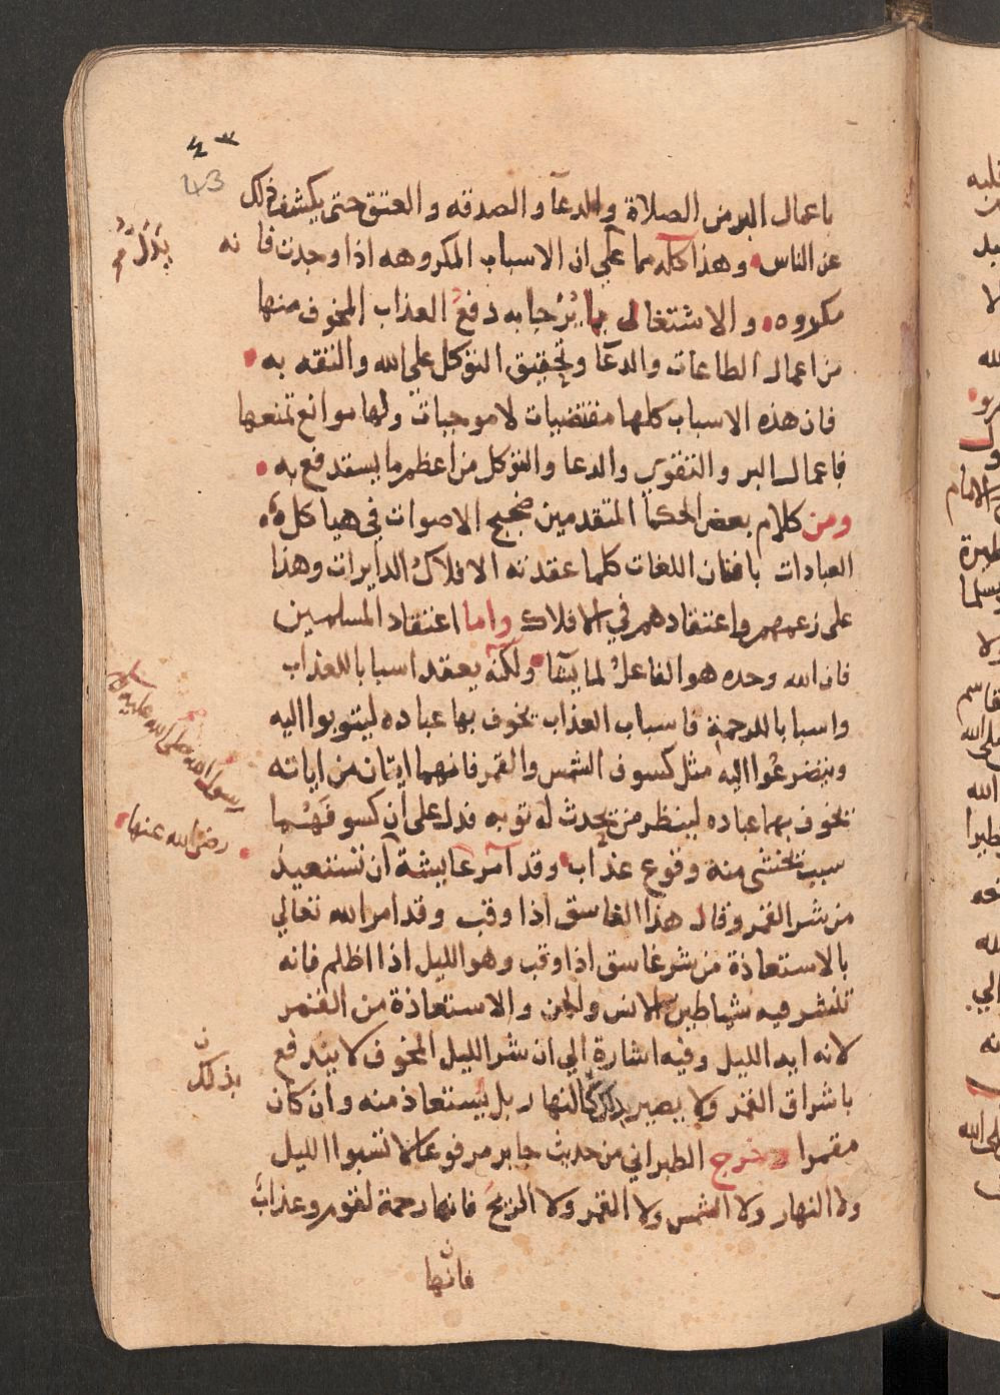 ٤٣
43
باعمال البر من الصلاة والدعآ والصدقه والعتق حتى يكشف ذلك
عن الناس وهذا كله مما على ان الاسباب المكروهه اذا وجدت فا نه
يدل
مكروه والاشتغال بما يُرْجا به دفع العذاب المخوف منها
من اعمال الطاعات والدعآ وتحقيق التوكل على الله والثقه به
فان هذه الاسباب كلها مقتضيات لا موجبات ولها موانع تمنعها
فاعمال البر والتقوي والدعا والتوكل من اعظم ما يستدفع به
ومن كلام بعض الحكمآ المتقدمين ضجيج الاصوات في هياكل
العبادات بافنان اللغات كلما عقدته الافلاك الدايرات وهذا
على زعمهم واعتقادهم في الافلاك واما اعتقاد المسلمين
فان الله وحده هو الفاعل لما يشآ ولكنه يعقد اسبابا للعذاب
واسبابا للرحمة فاسباب العذاب يخوف بها عباده ليتوبوا اليه
ويتضرعوا اليه مثل كسوف الشمس والقمر فانهما ايتان من اياته
يخوف بهما عباده لينظر من يحدث له توبه فدل على ان كسوفهما
سبب يخشى منه وقوع عذاب وقد امر عايشة ان تستعيذ
رسول الله صلى الله عليه
رضى الله عنها
من شر القمر وقال هذا الغاسق اذا وقب وقد امر الله تعالي
بالاستعاذة من شر غاسق اذا وقب وهو الليل اذا اظلم فانه
تنتشر فيه شياطين الانس والجن والاستعاذة من القمر
لانه ايه الليل وفيه اشارة الي ان شر الليل المخوف لا يندفع
باشراق القمر ولا يصير كالنهار بل يستعاذ منه وان كان
بذلك
مقمرا وخرج الطبراني من حديث جابر مرفوعا لا تسبوا الليل
ولا النهار ولا الشمس ولا القمر ولا الريح فانها رحمة لقوم وعذاب
فانها